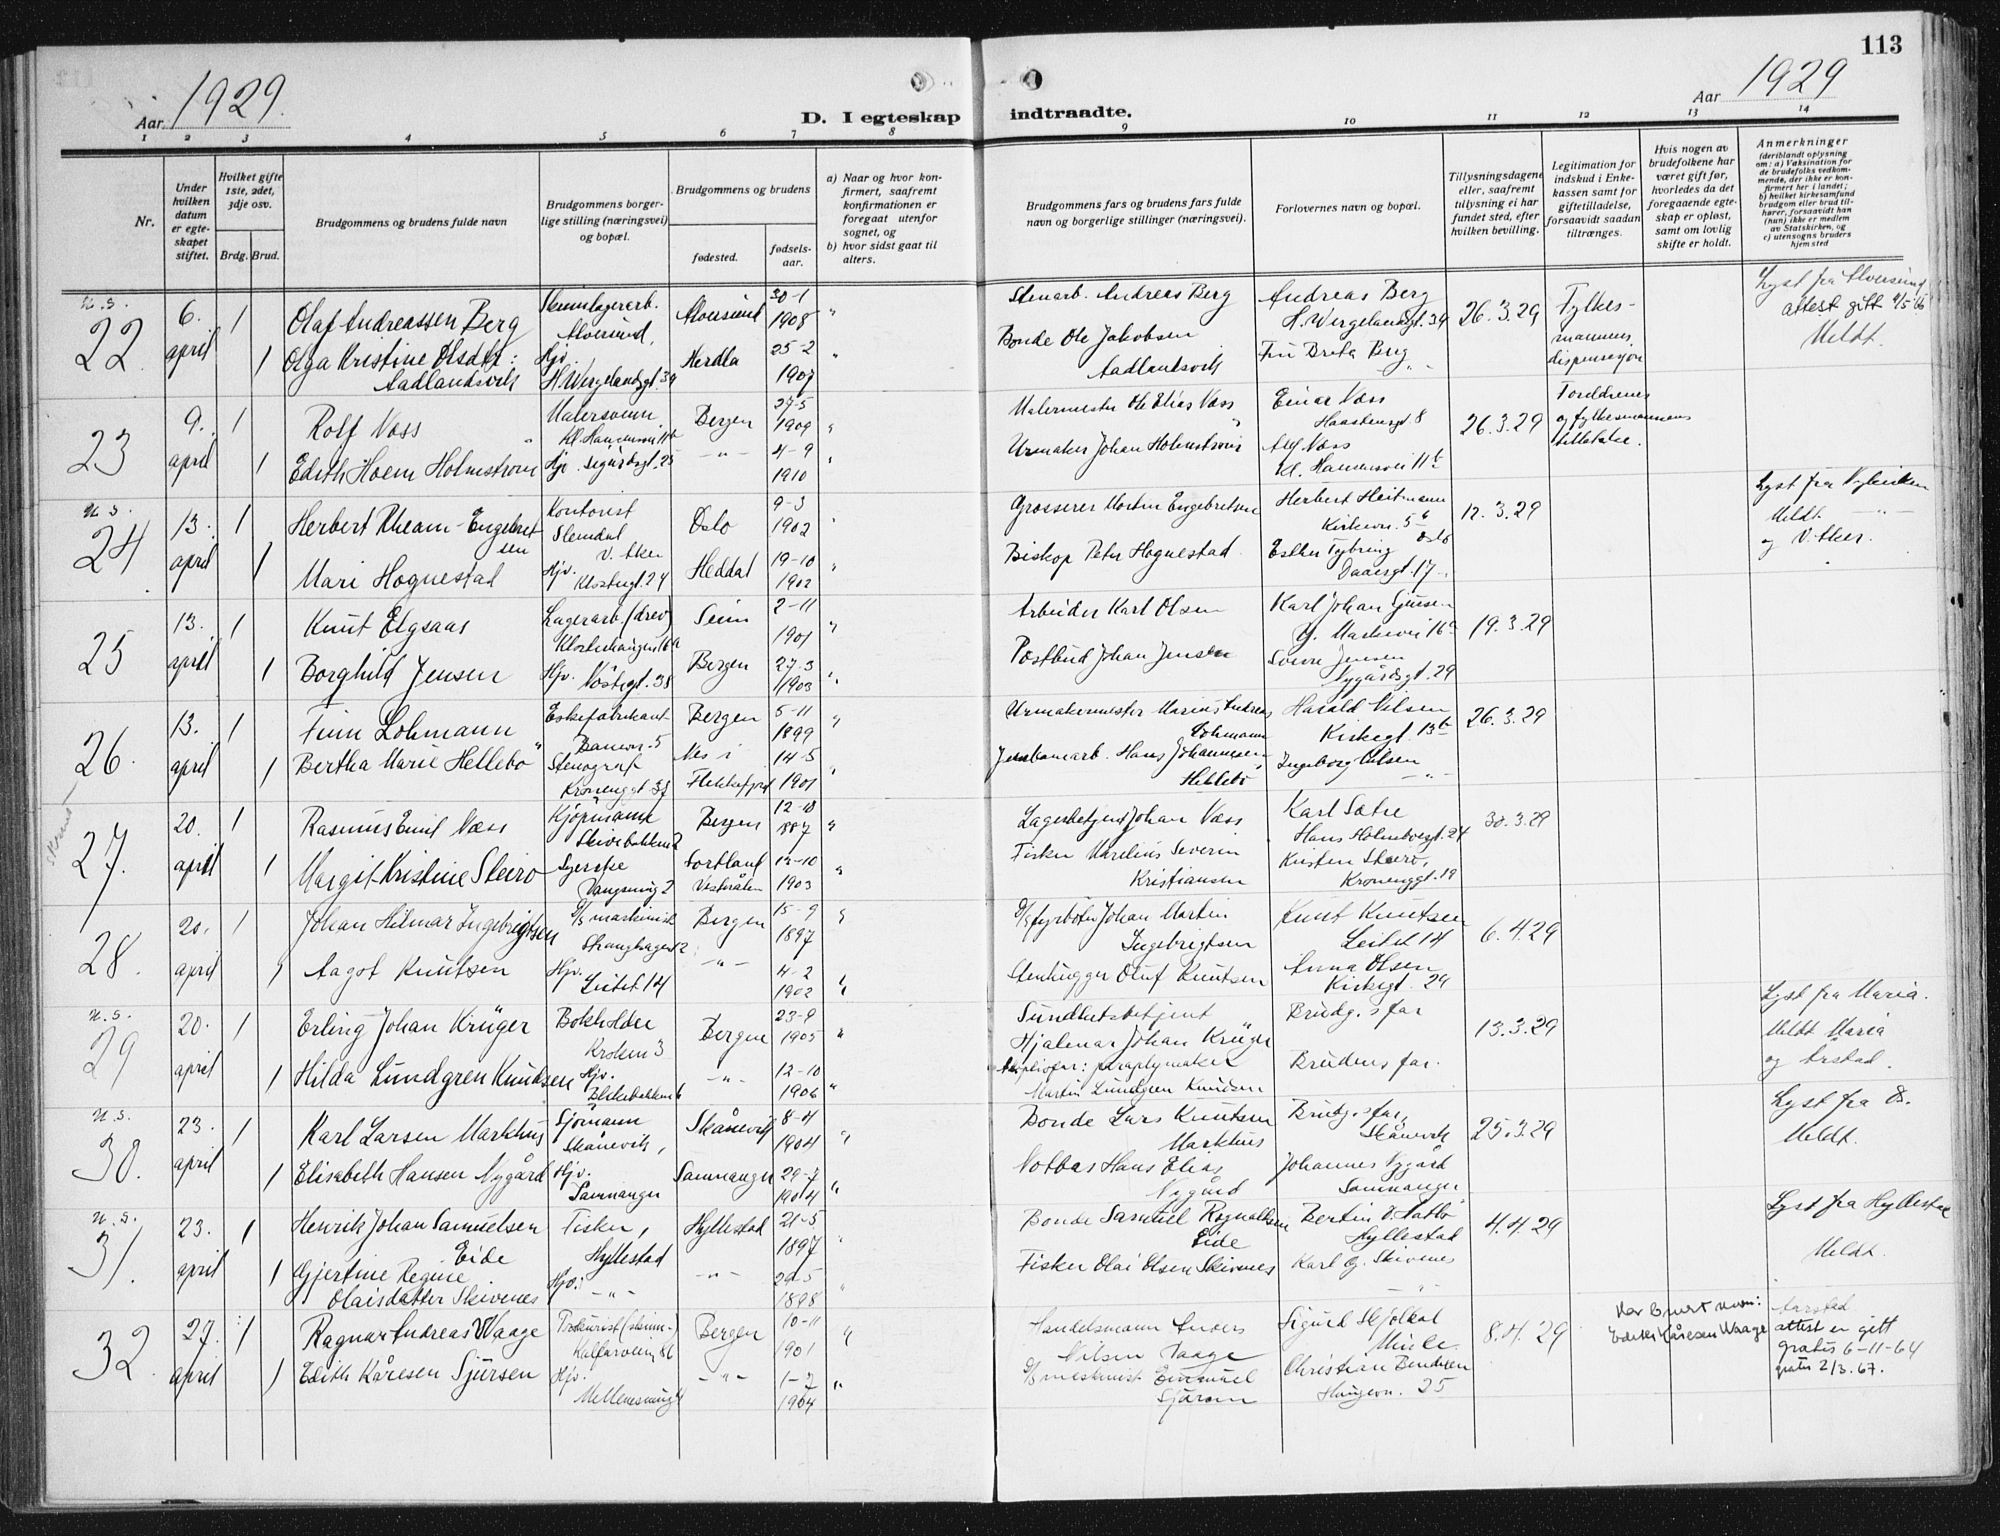 113
Aar 1929.
Aar 1929
D. I egteskap indtraadte.
1 2 3 4 5 6 7 8 9 10 11 12 13 14
Nr.
Under hvilken datum er egteskapet stiftet.
Hvilket gifte 1ste, 2det, 3dje osv.
Brdg. Brud.
Brudgommens og brudens fulde navn
Brudgommens borgerlige stilling (næringsvei) og bopæl.
Brudgommens og brudens
fødested.
fødselsaar.
a) Naar og hvor konfirmert, saafremt konfirmationen er foregaat utenfor sognet, og
b) hvor sidst gaat til alters.
Brudgommens fars og brudens fars fulde navn og borgerlige stillinger (næringsvei).
Forlovernes navn og bopæl.
Tillysningsdagene eller, saafremt tillysning ei har fundet sted, efter hvilken bevilling.
Legitimation for indskud i Enkekassen samt for giftetilladelse, forsaavidt saadan tiltrænges.
Hvis nogen av brudefolkene har været gift før, hvorledes da det foregaaende egteskap er opløst, samt om lovlig skifte er holdt.
Anmerkninger
(deriblandt oplysning om: a) Vaksination for de brudefolks vedkommende, der ikke er konfirmert her i landet; b) hvilket kirkesamfund brudgom eller brud tilhører, forsaavidt han (hun) ikke er medlem av Statskirken, og c) utensogns bruders hjemsted
u.s.
22
6. april
1
Olaf Andreassen Berg
Alversund,
Alversund
30-1 1908
Stenarb. Andreas Berg
Andreas Berg
H. Wergelandsgt. 39
26.3.29
Fylkesmannens dispensasjon
Lyst fra Alversund
attest gitt 4/5 66
Meldt.
1
Olga Kristine Olsdtr: Aadlandsvik
Hjv.
H. Wergelandsgt. 39
Herdla
25-2 1907
Bonde Ole Jakobsen Aadlandsvik
Fru Berta Berg
23
9. april
1
Rolf Næss
Malersvenn
Kl. Hansensvei 11b
Bergen
27-5 1909
Malermester Ole Elias Næss
Einar Næss
8
26.3.29
og fylkesmannens tillatelse.
1
Edith Hoem Holmstrøm
Hjv. Sigurdsgt. 25
4-9 1910
Urmaker Johan Holmstrøm
Alf Næss
Kl. Hansensvei 11b
u.s.
24
13. april
1
Herbert Rheam-Engebretsen
Kontorist
Slemdal
V. Aker
Oslo
9-3 1902
Grosserer Morten Engebretsen
Herbert Heitmann
Kirkevn. 5b
Oslo
12.3.29
Meldt
og V. Aker.
1
Mari Hognestad
Hjv. Klostergt. 24
Heddal
19-10 1902
Biskop Peter Hognestad
Esther Tybring
Daaesgt. 17
25
13. april
1
Knut Elgsaas
Lagerarb (drev)
Klosterhaugen 16a
Seim
2-11 1901
Arbeider Karl Olsen
Karl Johan
16
19.3.29
1
Borghild Jensen
Hjv. Nøstegt. 38
Bergen
27-3 1903
Postbud Johan Jensen
Sverre Jensen
Nygårdsgt. 29
26
13. april
1
Finn Lohmann
Eskefabrikant
Banevn. 5
Bergen
5-11 1899
Urmakermester Marius Andreas Lohmann
Harald Nilsen
Kirkegt. 13b
26.3.29
1
Bertha Marie Hellebø
Stenograf
Kroneng gt 37
Nes i Flekkefjord
14-5 1901
Hans Johannesen Hellebø
Ingeborg Nilsen
27
20. april
1
Rasmus Emil Næss
Kjøpmann
Skivebakken 2
Bergen
12-10 1887
Lagerbetjent Johan Næss
Karl Sætre
24
30.3.29
1
Margit Kristine Steiro
Syerske
2
Sortland Vesterålen
12-10 1903
Fisker Marelius Severin Kristiansen
Kristen Steiro,
Kronenggt. 19
28
20. april
1
Johan Hilmar Ingebrigtsen
D/s maskinist
Stranghagen 2
Bergen
15-9 1897
D/s fyrbøter Johan Martin Ingebrigtsen
Knut Knutsen
Leitet 14
6.4.29
1
Aagot Knutsen
Hjv. Leitet 14
4-2 1902
Stenhugger Oluf Knutsen
Anna Olsen
Kirkegt. 29
u.s.
29
20. april
1
Erling Johan Krüger
Bokholder
Kroken 3
Bergen
23-9 1905
Sundhetsbetjent Hjalmar Johan Krüger
Brudg.s far
13.3.29
Lyst fra Maria.
Meldt Maria
og Årstad.
1
Hilda Lundgren Knudsen
Hjv. Blekebakken 6
12-10 1906
paraplymaker Martin Lundgren Knudsen
Brudens far.
u.s.
30
23. april
1
Karl Larsen Markhus
Sjømann
Skånevik,
Skånevik
8-4 1904
Bonde Lars Knutsen Markhus
Brudg.s far,
Skånevik
25.3.29
Lyst fra Os.
Meldt.
1
Elisabeth Hansen Nygård
Hjv. Samnanger
Samnanger
29-7 1904
Notbas Hans Elias Nygård
Johannes Nygård
Samnanger
u.s.
31.
23. april
1
Henrik Johan Samuelsen Eide
Fisker,
Hyllestad
Hyllestad
21-5 1897
Bonde Samuel Rognaldsen Eide
Bertin V.
Hyllestad
4.4.29
Lyst fra Hyllestad
Meldt.
1
Gjertine Regine Olaisdatter Skivenes
Hjv.
29-5 1898
Fisker Olai Olsen Skivenes
Karl G. Skivenes
32
27. april
1
Ragnar Andreas Waage
Prokurist
Kalfarveien 86
Bergen
10-11 1901
Handelsmann Anders Nilsen Vaage
Sigurd
8.4.29
Har endret navn: Edith Kåresen Waage
Aarstad
attest er gitt
gratis 6-11-64
gratis 2/3. 67.
1
Edith Kåresen Sjursen
Hjv.
1-7 1904
D/s maskinist Emanuel
Christian Bendixen
Haugevn. 25